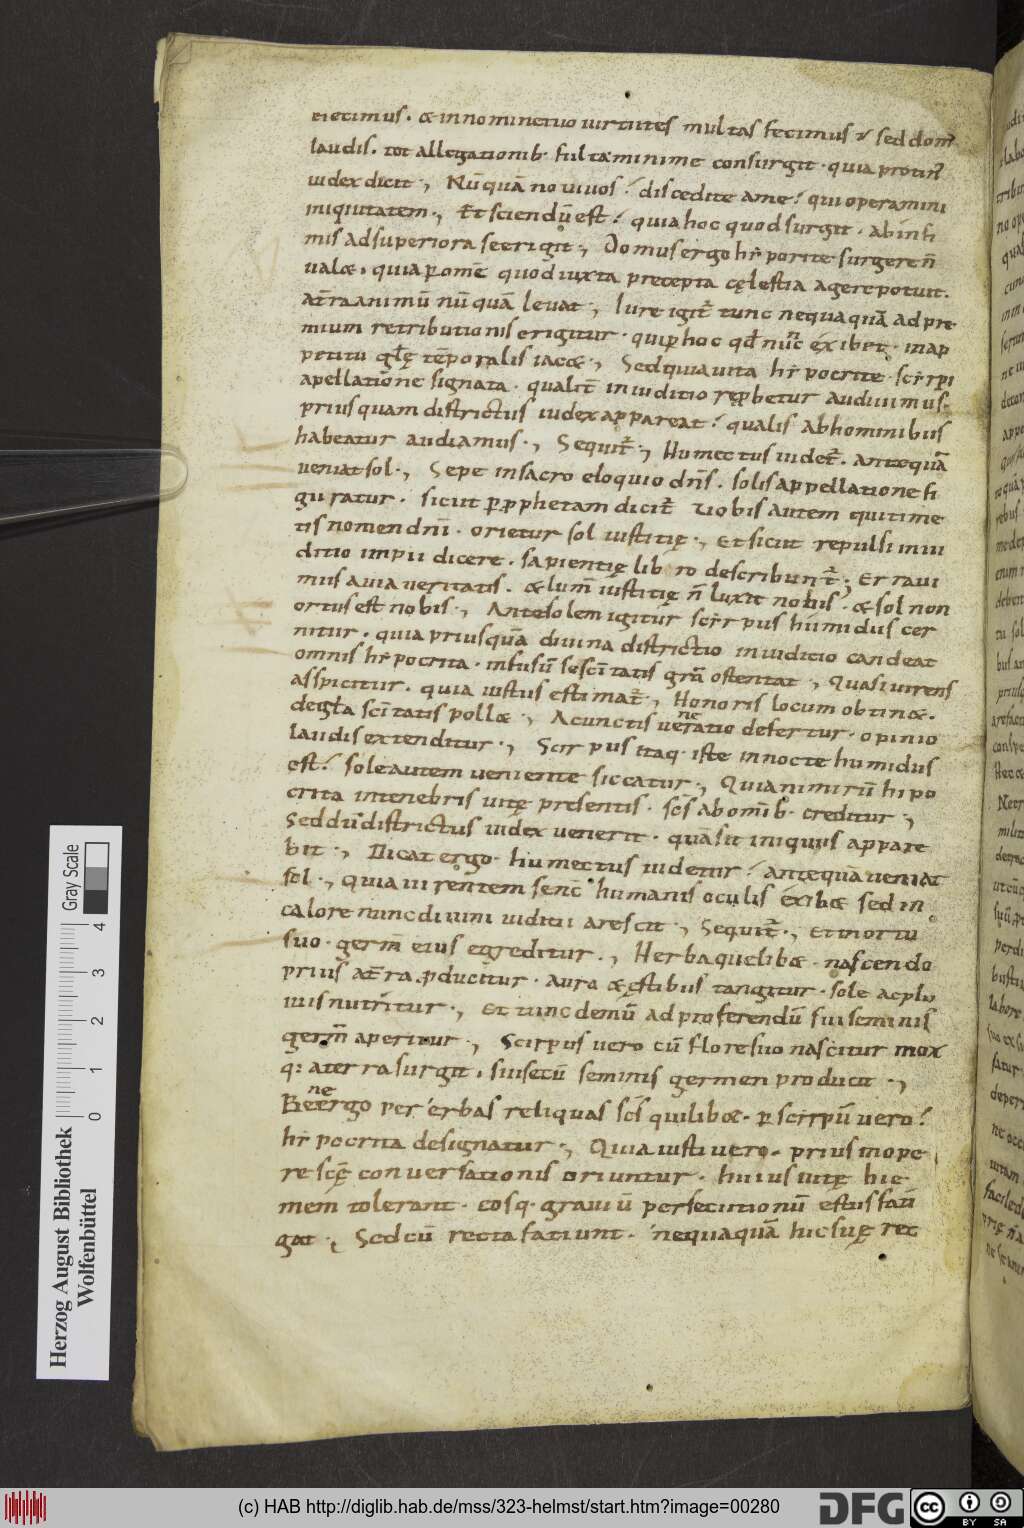 eiecimus. & in nomine tuo uirtutes multas fecimus? sed dom̄
laudis. tot allegationib. fulta minime consurgit. quia protin᷒
iudex dicit., Nūquā noui uos? discedite ame? qui operamini
iniquitatem., Et sciendū est? quia hoc quod surgit. ab infi
mis ad superiora se erigit., Domus ergo hẏporite surgere n̄
ual&. quia p omē quod iuxta precepta cęlestia agere potuit.
at̄ra animū nūquā leuat., Iure igit̄ tunc nequaquā ad pre
mium retributionis erigitur. qui p hoc qd̄ nunc exibet. in ap
petitu glę tēporalis iac&., Sed quia uita hẏpocrite. scẏrpi
apellatione signata. qualit̄ in iuditio reꝓbetur audiuimus.
priusquam districtus iudex appareat? qualis abhominibus
habeatur audiamus., Sequit̄., Humectus uidet̄. antequā
ueniat sol., Sepe in sacro eloquio dn̄s. solis appellatione fi
guratur. sicut p ꝓphetam dicit̄ Uobis autem qui time
tis nomen dn̄i. orietur sol iustitię., Et sicut repulsi in iu
ditio impii dicere. sapientię libro describunt̄., Erraui
mus a uia ueritatis. & lum̄ iustitię n̄ luxit nobis. & sol non
ortus est nobis., Ante solem igitur scẏrpus humidus cer
nitur. quia priusquā diuina districtio in iuditio candeat
omnis hẏpocrita. infusū se scitatis grā ostentat., Quasi uirens
asspicitur. quia iustus estimat̄., Honoris locum obtin&.
de gla scitatis poll&., A cunctis ueneratio defertur. opinio
laudis extenditur., Scirpus itaq. iste in nocte humidus
est? sole autem ueniente siccatur., Quia nimirū hipo
crita in tenebris uitę presentis. scs ab omīb. creditur.,
Sed dū districtus iudex uenerit. quā sit iniquus appare
bit., Dicat ergo. humectus uidetur? antequā ueniat
sol., Quia uirentem se nc humanis oculis exib& sed in
calore nunc diuini iuditii arescit., Sequit̄., Et in ortu
suo. germ̄ eius egreditur., Herba quelib&. nascendo
prius at̄ra ꝓducitur. aura & ęstibus tangitur. sole ac plu
uiis nutritur., Et tunc demū ad proferendū sui seminis
germ̄ aperitur., Scirpus uero cū flore suo nascitur mox
q: a terra surgit. sui secū seminis germen producit.,
Bene ergo per erbas reliquas scs quilib&. p scẏrpū uero?
hẏpocrita designatur., Quia iusti uero. prius in ope
re scę conuersationis oriuntur. huius uitę hie
mem tolerant. eosq. grauiū persecutionū estus fati
gat., Sed cū recta fatiunt. nequaquā hic suę rec
Herzog August Bibliothek
Wolfenbüttel
Gray Scale
0 1 2 3 4
(c) HAB http://diglib.hab.de/mss/323-helmst/start.htm?image=00280
DFG
cc BY SA